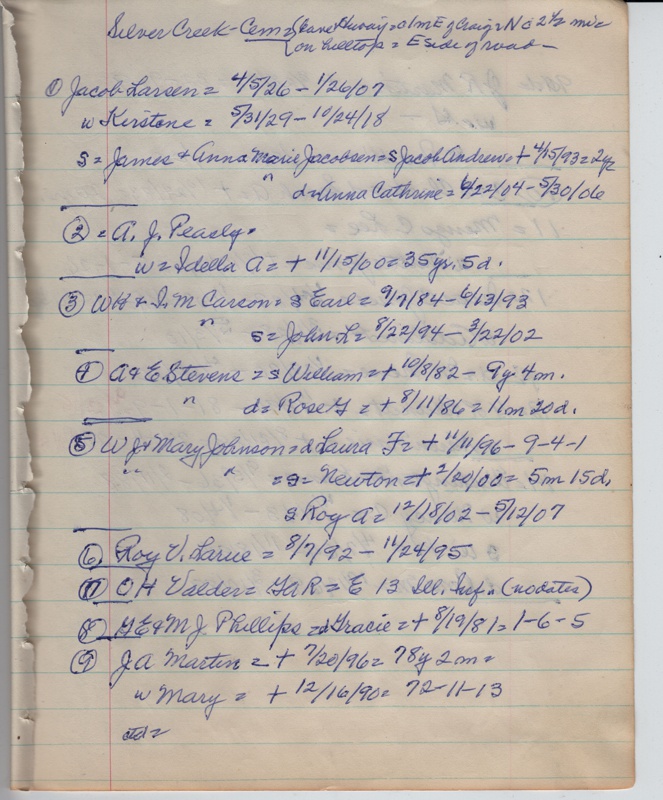 Silver Creek - Cem = {State Hiway = 1 m E of Craig & N = 2 1/2 mi =
on hilltop = E side of road -
① Jacob Larsen = 4/5/26 - 1/26/07
w Kirstone = 5/31/29 - 10/24/18
s = James & Anna Marie Jacobsen = s Jacob Andrew = + 4/15/93 = 2 yr
" d = Anna Cathrine = 6/22/04 - 5/30/06
② = A. J. Peasly.
w = Idella A = + 11/15/00 = 35 yrs. 5 d.
③ WH & S. M Carson = s Earl = 9/7/84 - 6/13/93
" s = John L = 8/22/94 - 3/22/02
④ A & E. Stevens = s William = + 10/8/82 - 9 y 4 m.
" d = Rose = + 8/11/86 = 11 m 20 d.
⑤ W J & Mary Johnson = d Laura F = + 11/11/96 - 9-4-1
" " = s = Newton = + 2/20/00 = 5 m 15 d.
s Roy A = 12/18/02 - 5/12/07
⑥ Roy V. Larue = 8/7/92 - 11/24/95
⑦ O H Valder = GAR = E 13 Ill. Inf. (no dates)
⑧ & M J. Phillips = d Gracie = + 8/19/81 = 1-6-5
⑨ J. A Martin = + 7/20/96 = 78 y 2 m =
w Mary = + 12/16/90 = 72-11-13